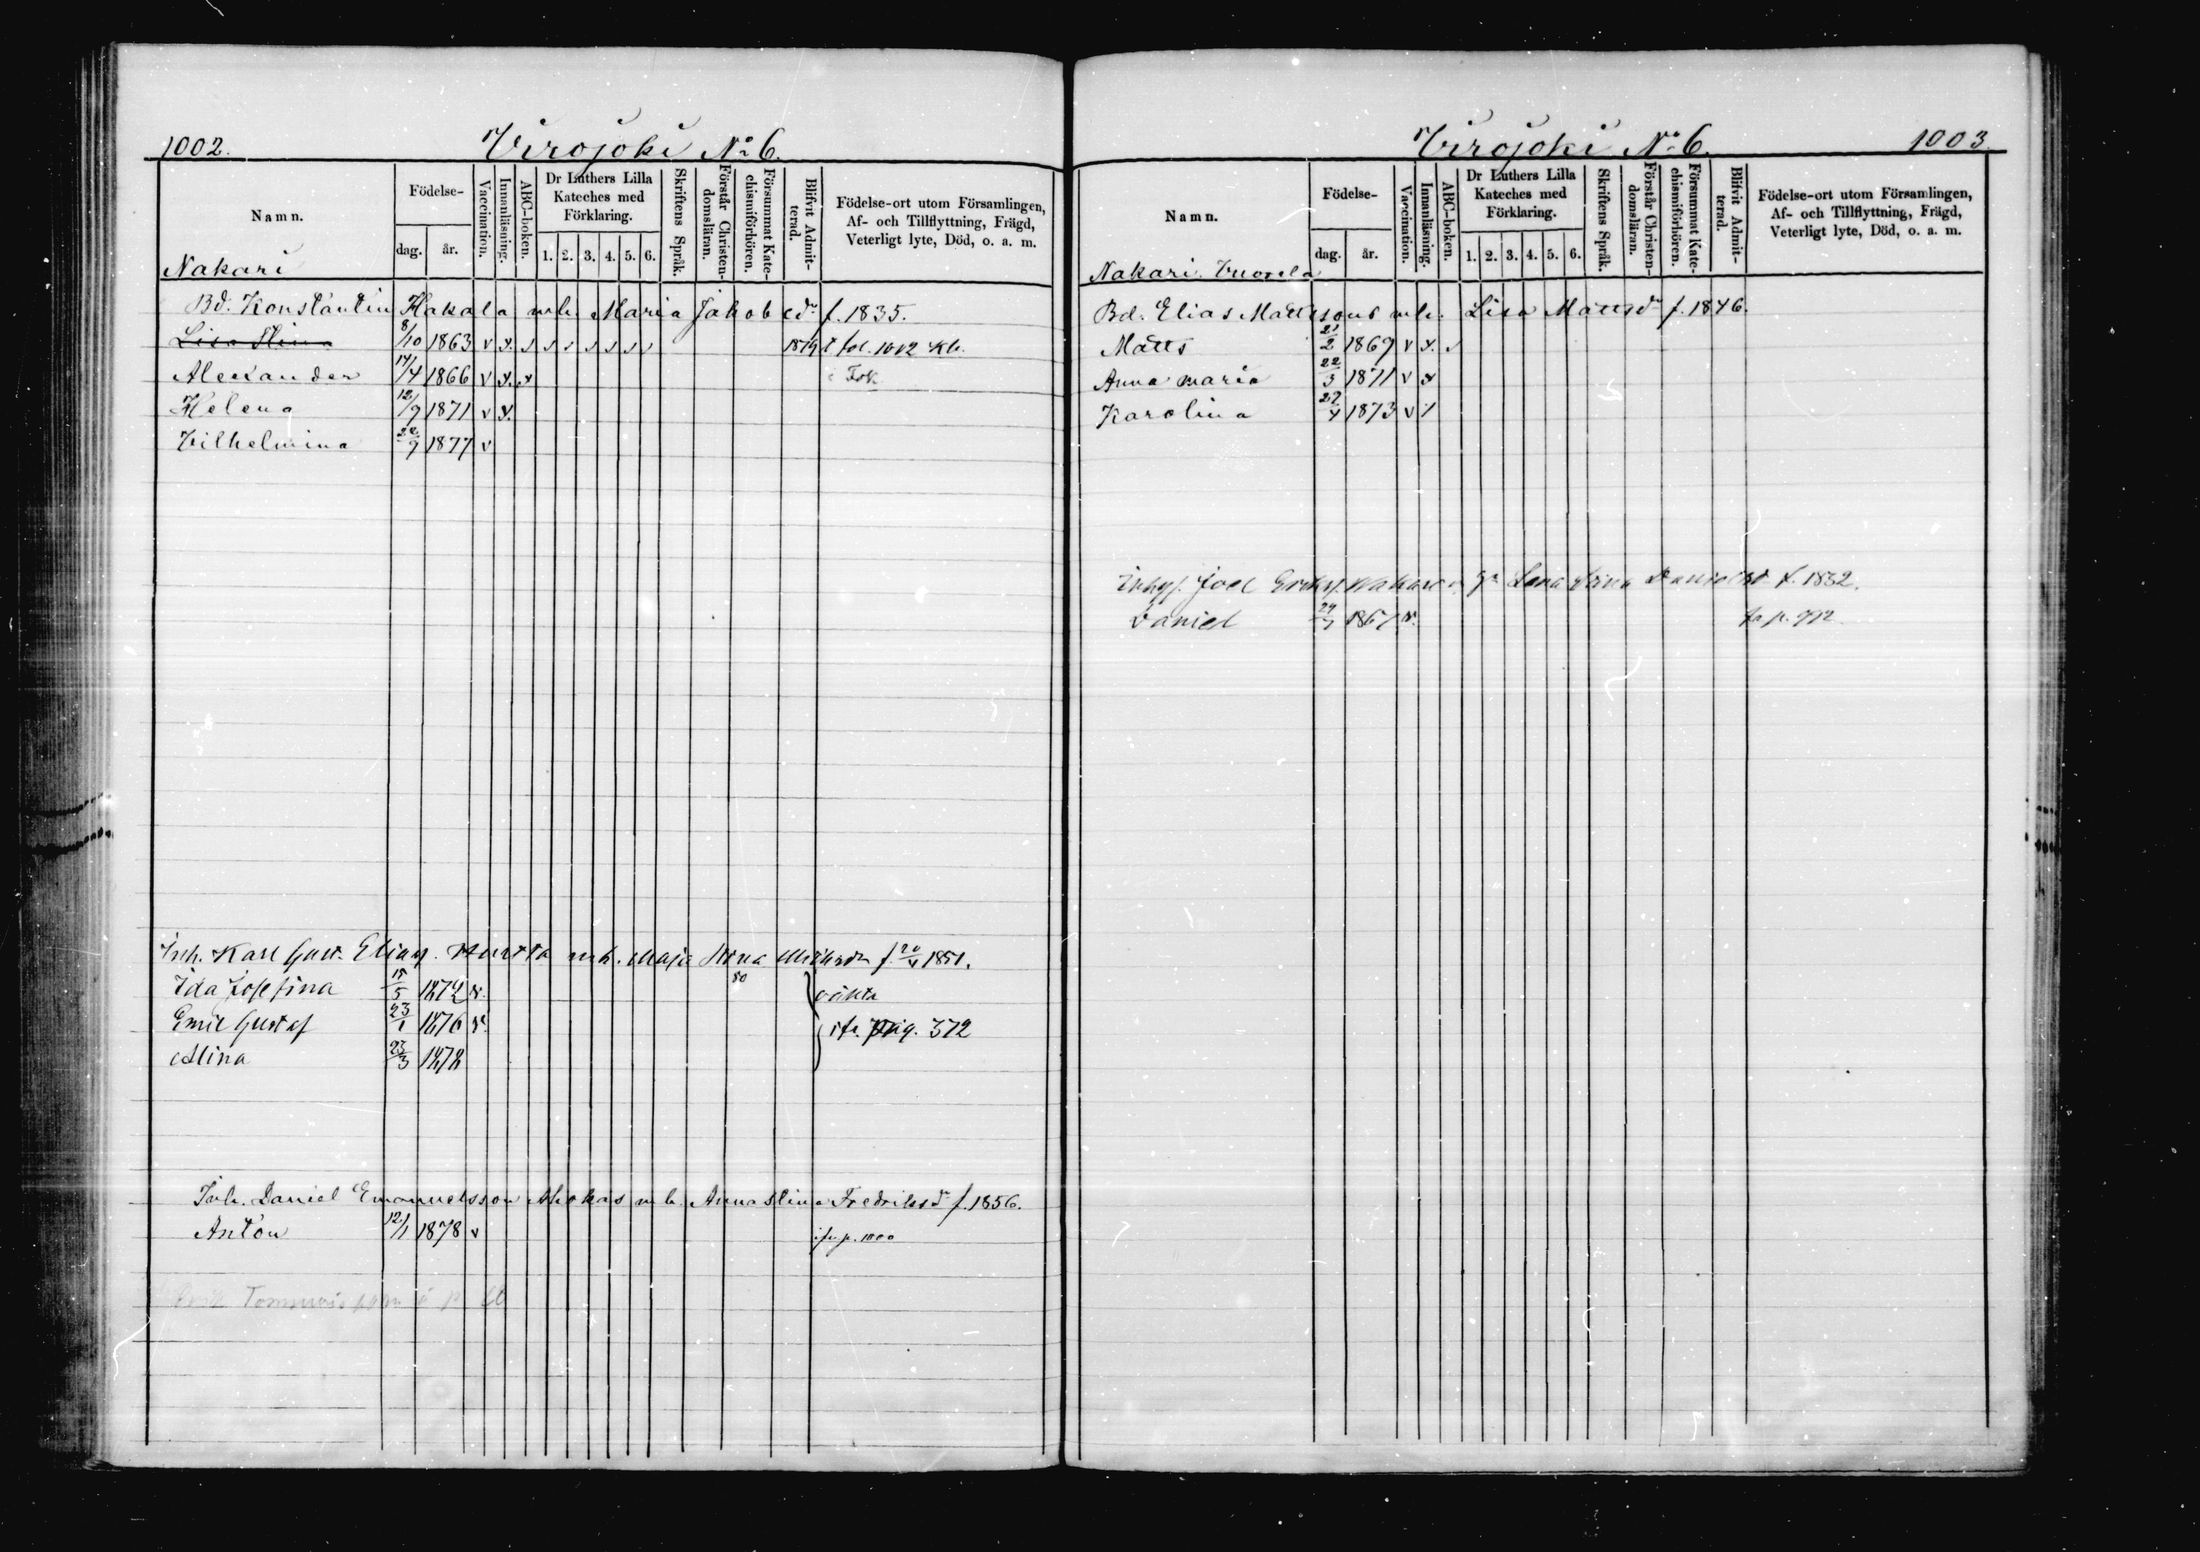 1002. Virojoki No 6.
Namn. Födelse- dag. år. Vaccination. Innanläsning. ABC-boken. Dr Luthers Lilla Kateches med Förklaring. 1. 2. 3. 4. 5. 6. Skriftens Språk. Förstår Christendomsläran. Försummat Katechismiförhören. Blifvit Admitterad. Födelse-ort utom Församlingen, Af- och Tillflyttning, Frägd, Veterligt lyte, Död, o. a. m.
Nakari
Bd. Konstantin Hakala m.h. Maria Jakobsdr f. 1835.
Lisa Stina 8/10 1863 v x. 1879 t fol. 1012 Kb.
Alexander 17/4 1866 v x. x
Helena 12/9 1871 v x.
Vilhelmina 22/9 1877 v
Inh. Karl Gust. Eliass. m.h. Maja Stina f. 20/4 1851.
Ida Josefina 15/5 1872 v.
Emil Gustaf 23/1 1876 v. ifr. pag. 372
Alina 23/3 1878
Inh. Daniel Emanuelsson m.h. Anna Stina Fredriksdr f. 1856.
Anton 12/1 1878 v ifr. p. 1000
Virojoki No 6. 1003.
Namn. Födelse- dag. år. Vaccination. Innanläsning. ABC-boken. Dr Luthers Lilla Kateches med Förklaring. 1. 2. 3. 4. 5. 6. Skriftens Språk. Förstår Christendomsläran. Försummat Katechismiförhören. Blifvit Admitterad. Födelse-ort utom Församlingen, Af- och Tillflyttning, Frägd, Veterligt lyte, Död, o. a. m.
Nakari Vuorela
Bd. Elias Mattssons m.h. Lisa Mattsdr f. 1846.
Matts 21/2 1869 v x.
Anna Maria 22/3 1871 v x
Karolina 27/4 1873 v /
Joel Nakari Lena Stina Danielsd f. 1832.
Daniel 1867 v. fr p. 992